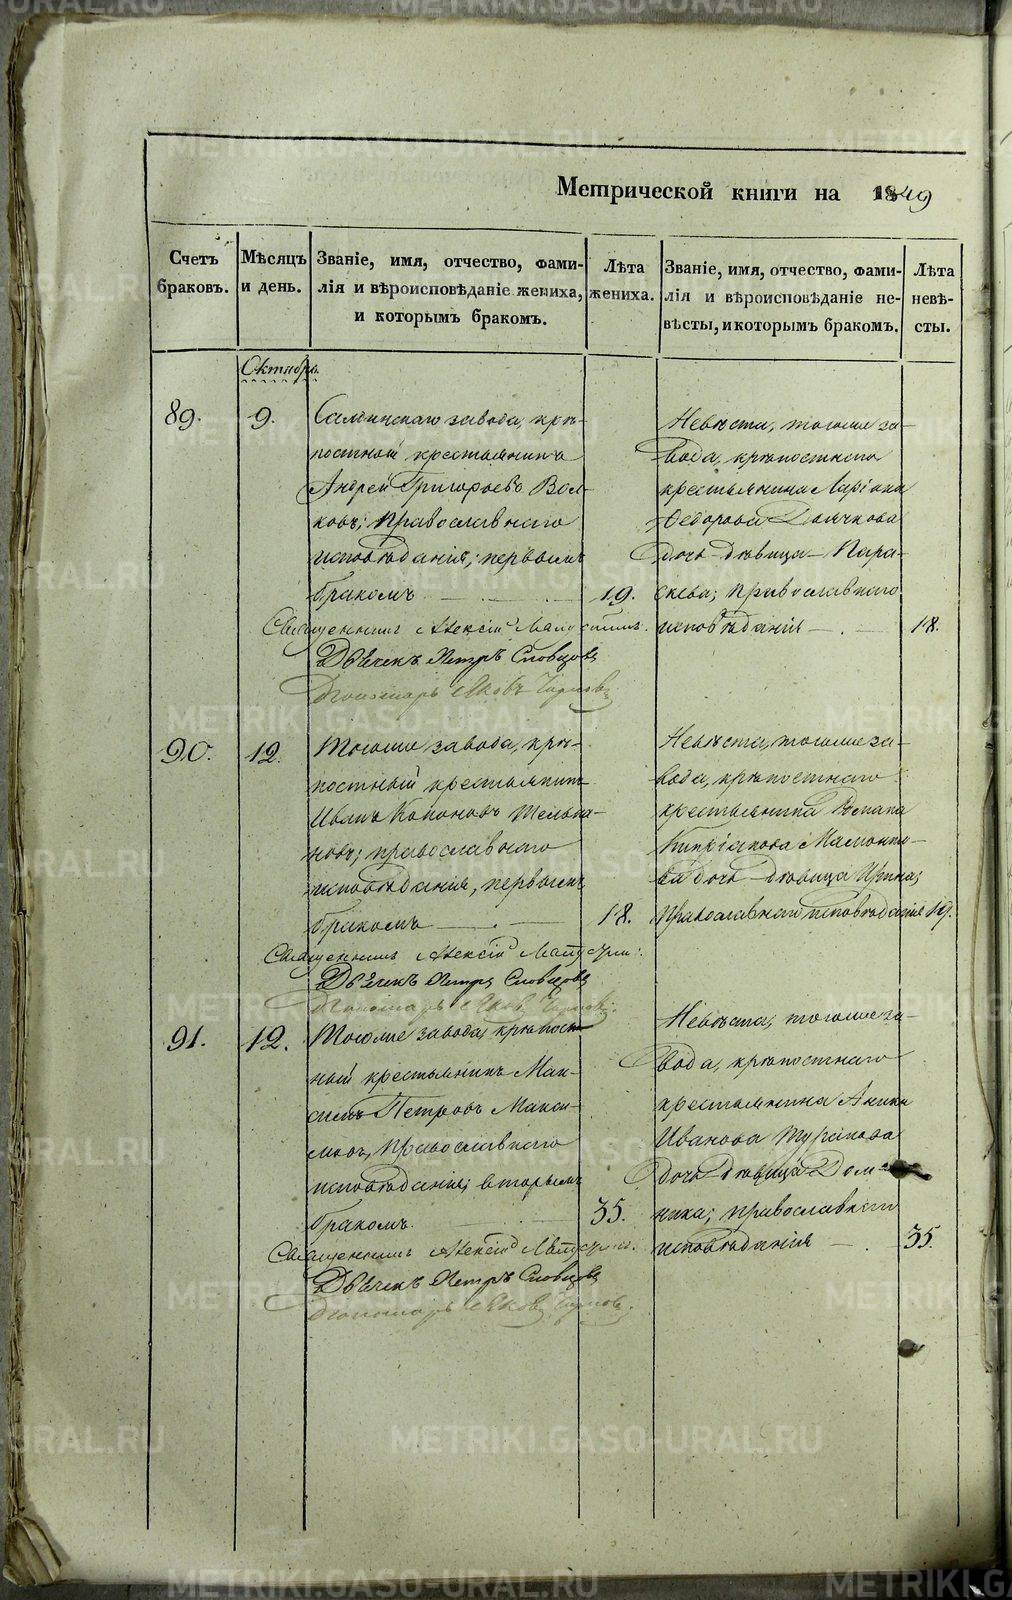 Метрической книги на 1849
Счетъ браковъ.
Мѣсяцъ и день.
Званіе, имя, отчество, фами-
лія и вѣроисповѣданіе жениха,
и которымъ бракомъ.
Лѣта жениха.
Званіе, имя, отчество, фами-
лія и вѣроисповѣданіе не-
вѣсты, и которымъ бракомъ.
Лѣта невѣ-
сты.
Октябрь.
89.
9.
завода, крѣ-
постный крестьянинъ
Андрей Григорьевъ Вол-
ковъ; православнаго
исповѣданія; первымъ
бракомъ
19.
Невѣста, тогоже за-
вода, крѣпостнаго
крестьянина Ларіона
Федорова
дочь дѣвица Пара-
скева; православнаго
исповѣданія
18.
Священникъ Алексій
Дьячекъ Петръ Словцовъ
Пономарь Яковъ
90.
12.
Тогоже завода, крѣ-
постный крестьянинъ
Иванъ Кононовъ
новъ; православнаго
исповѣданія, первымъ
бракомъ
18.
Невѣста, тогоже за-
вода, крѣпостнаго
крестьянина Романа
Кипріянова Мамонто-
ва дочь дѣвица Ирина;
православнаго исповѣданія 19.
Священникъ Алексій
Дьячекъ Петръ Словцовъ
Пономарь Яковъ
91.
12.
Тогоже завода, крѣпост
ный крестьянинъ Мак-
симъ Петровъ Макси-
мовъ, православнаго
исповѣданія; вторымъ
бракомъ.
35.
Невѣста, тогоже за-
вода, крѣпостнаго
крестьянина Аники
Иванова
дочь дѣвица Дом-
ника; православнаго
исповѣданія
35.
Священникъ Алексій
Дьячекъ Петръ Словцовъ
Пономарь Яковъ
METRIKI.GASO-URAL.RU